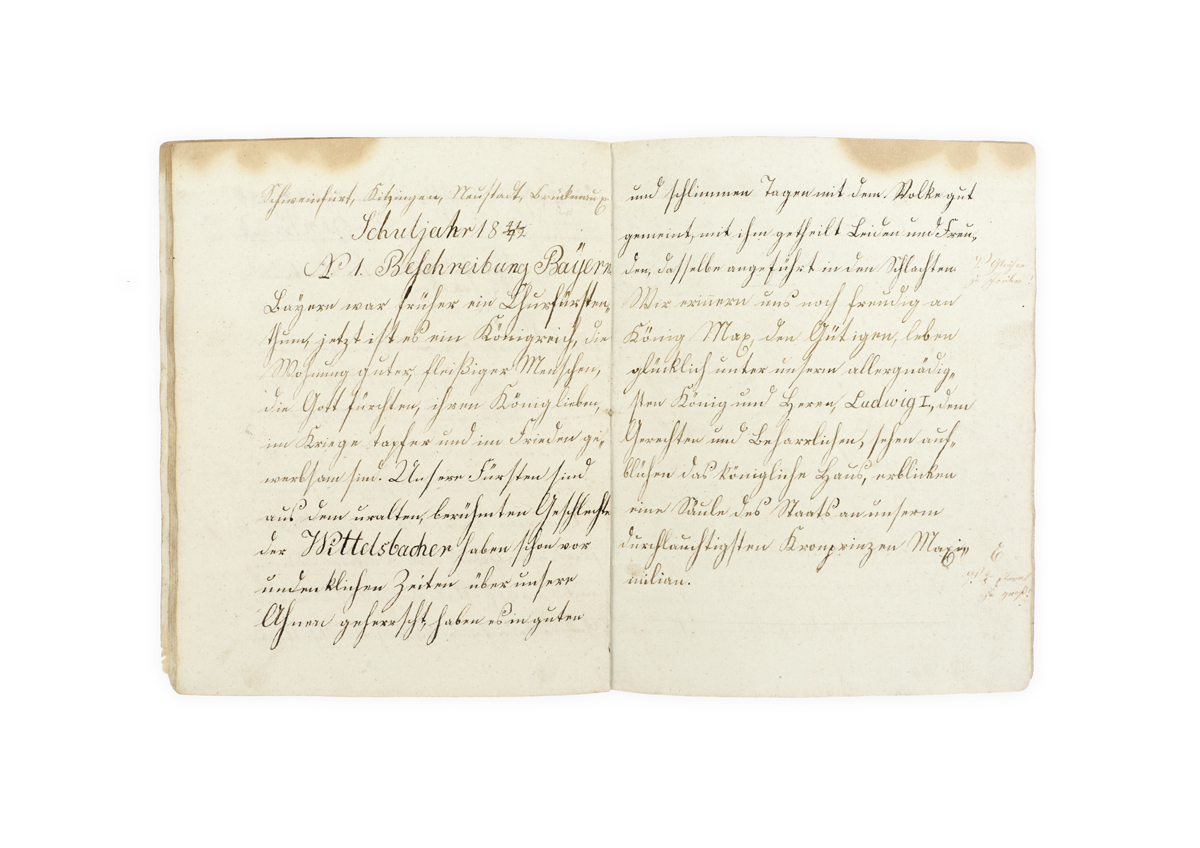 Schweinfurt, Kitzingen, Neustadt, Brückenau
Schuljahr 18
No 1. Beschreibung Bayern
Bayern war früher ein Churfürsten-
thum, jetzt ist es ein Königreich, die
Wohnung guter, fleißiger Menschen,
die Gott fürchten, ihren König lieben,
im Kriege tapfer und im Frieden ge-
werbsam sind. Unsere Fürsten sind
aus dem uralten, berühmten Geschlechte
der Wittelsbacher haben schon vor
undenklichen Zeiten über unsere
Ahnen geherrscht, haben es in guten
und schlimmen Tagen mit dem Volke gut
gemeint, mit ihm getheilt Leiden und Freu-
den, dasselbe angeführt in den Schlachten
Wir erinern uns noch freudig an
König Max, den Gütigen, leben
glücklich unter unserm allergnädig-
sten König und Herrn, Ludwig I., dem
Gerechten und Beharrlichen, sehen auf-
blühen das königliche Haus, erblicken
eine Säule des Staats an unserm
durchlauchtigsten Kronprinzen Maxi-
milian.